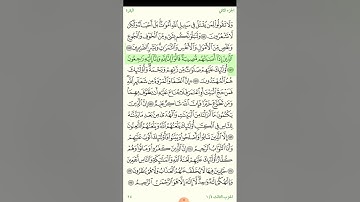 الجزء الثاني البقرة
وَلَا تَقُولُوا۟ لِمَن يُقْتَلُ فِى سَبِيلِ ٱللَّهِ أَمْوَٰتٌۢ ۚ بَلْ أَحْيَآءٌ وَلَٰكِن
لَّا تَشْعُرُونَ ١٥٤ وَلَنَبْلُوَنَّكُم بِشَىْءٍ مِّنَ ٱلْخَوْفِ وَٱلْجُوعِ
وَنَقْصٍ مِّنَ ٱلْأَمْوَٰلِ وَٱلْأَنفُسِ وَٱلثَّمَرَٰتِ ۗ وَبَشِّرِ ٱلصَّٰبِرِينَ ١٥٥
ٱلَّذِينَ إِذَآ أَصَٰبَتْهُم مُّصِيبَةٌ قَالُوٓا۟ إِنَّا لِلَّهِ وَإِنَّآ إِلَيْهِ رَٰجِعُونَ
١٥٦ أُو۟لَٰٓئِكَ عَلَيْهِمْ صَلَوَٰتٌ مِّن رَّبِّهِمْ وَرَحْمَةٌ ۖ وَأُو۟لَٰٓئِكَ
هُمُ ٱلْمُهْتَدُونَ ١٥٧ إِنَّ ٱلصَّفَا وَٱلْمَرْوَةَ مِن شَعَآئِرِ ٱللَّهِ ۖ
فَمَنْ حَجَّ ٱلْبَيْتَ أَوِ ٱعْتَمَرَ فَلَا جُنَاحَ عَلَيْهِ أَن يَطَّوَّفَ بِهِمَا ۚ
وَمَن تَطَوَّعَ خَيْرًا فَإِنَّ ٱللَّهَ شَاكِرٌ عَلِيمٌ ١٥٨ إِنَّ ٱلَّذِينَ
يَكْتُمُونَ مَآ أَنزَلْنَا مِنَ ٱلْبَيِّنَٰتِ وَٱلْهُدَىٰ مِنۢ بَعْدِ مَا بَيَّنَّٰهُ
لِلنَّاسِ فِى ٱلْكِتَٰبِ ۙ أُو۟لَٰٓئِكَ يَلْعَنُهُمُ ٱللَّهُ وَيَلْعَنُهُمُ ٱللَّٰعِنُونَ
١٥٩ إِلَّا ٱلَّذِينَ تَابُوا۟ وَأَصْلَحُوا۟ وَبَيَّنُوا۟ فَأُو۟لَٰٓئِكَ أَتُوبُ عَلَيْهِمْ ۚ
وَأَنَا ٱلتَّوَّابُ ٱلرَّحِيمُ ١٦٠ إِنَّ ٱلَّذِينَ كَفَرُوا۟ وَمَاتُوا۟ وَهُمْ
كُفَّارٌ أُو۟لَٰٓئِكَ عَلَيْهِمْ لَعْنَةُ ٱللَّهِ وَٱلْمَلَٰٓئِكَةِ وَٱلنَّاسِ أَجْمَعِينَ
١٦١ خَٰلِدِينَ فِيهَا ۖ لَا يُخَفَّفُ عَنْهُمُ ٱلْعَذَابُ وَلَا هُمْ يُنظَرُونَ
١٦٢ وَإِلَٰهُكُمْ إِلَٰهٌ وَٰحِدٌ ۖ لَّآ إِلَٰهَ إِلَّا هُوَ ٱلرَّحْمَٰنُ ٱلرَّحِيمُ ١٦٣
الحزب الثالث ٢٤